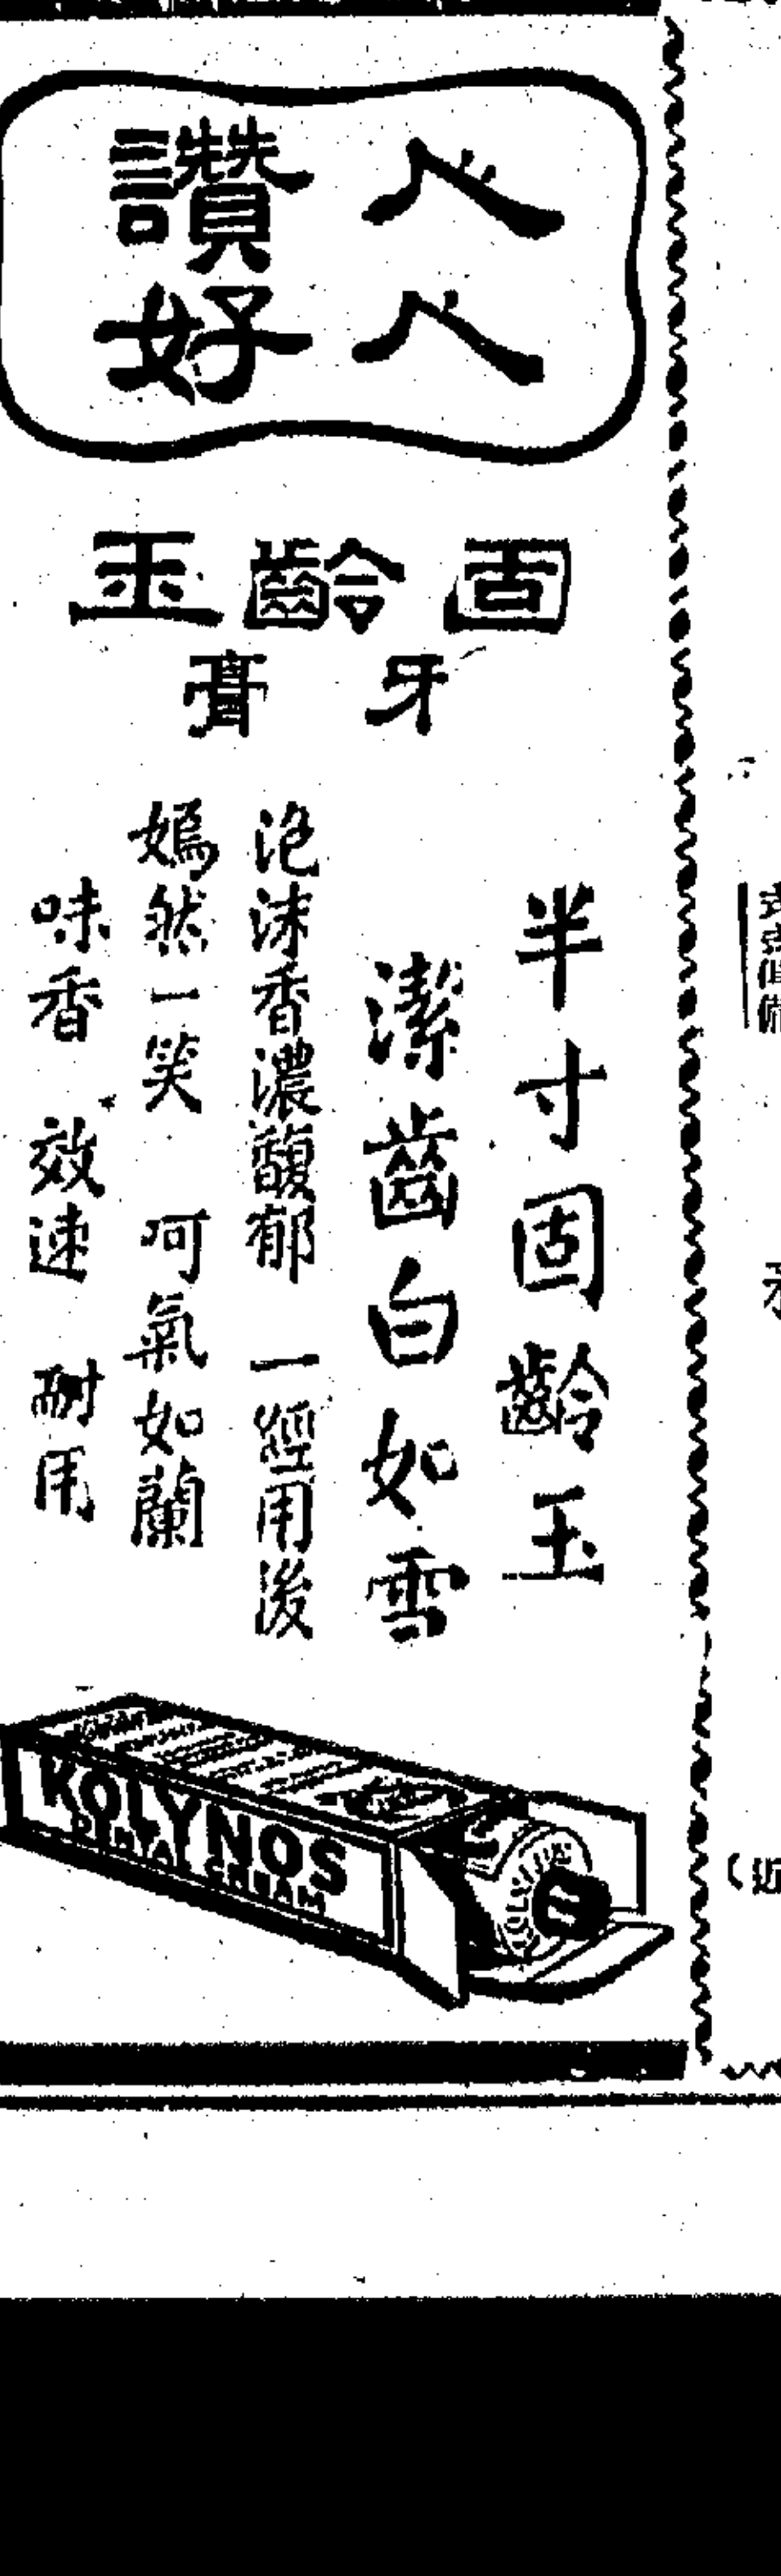 人人
讚好
固齡玉
牙膏
半寸固齡玉
潔齒白如雪
泡沫香濃馥郁 一經用後
嫣然一笑 呵氣如蘭
味香 效速 耐用
KOLYNOS
DENTAL CREAM